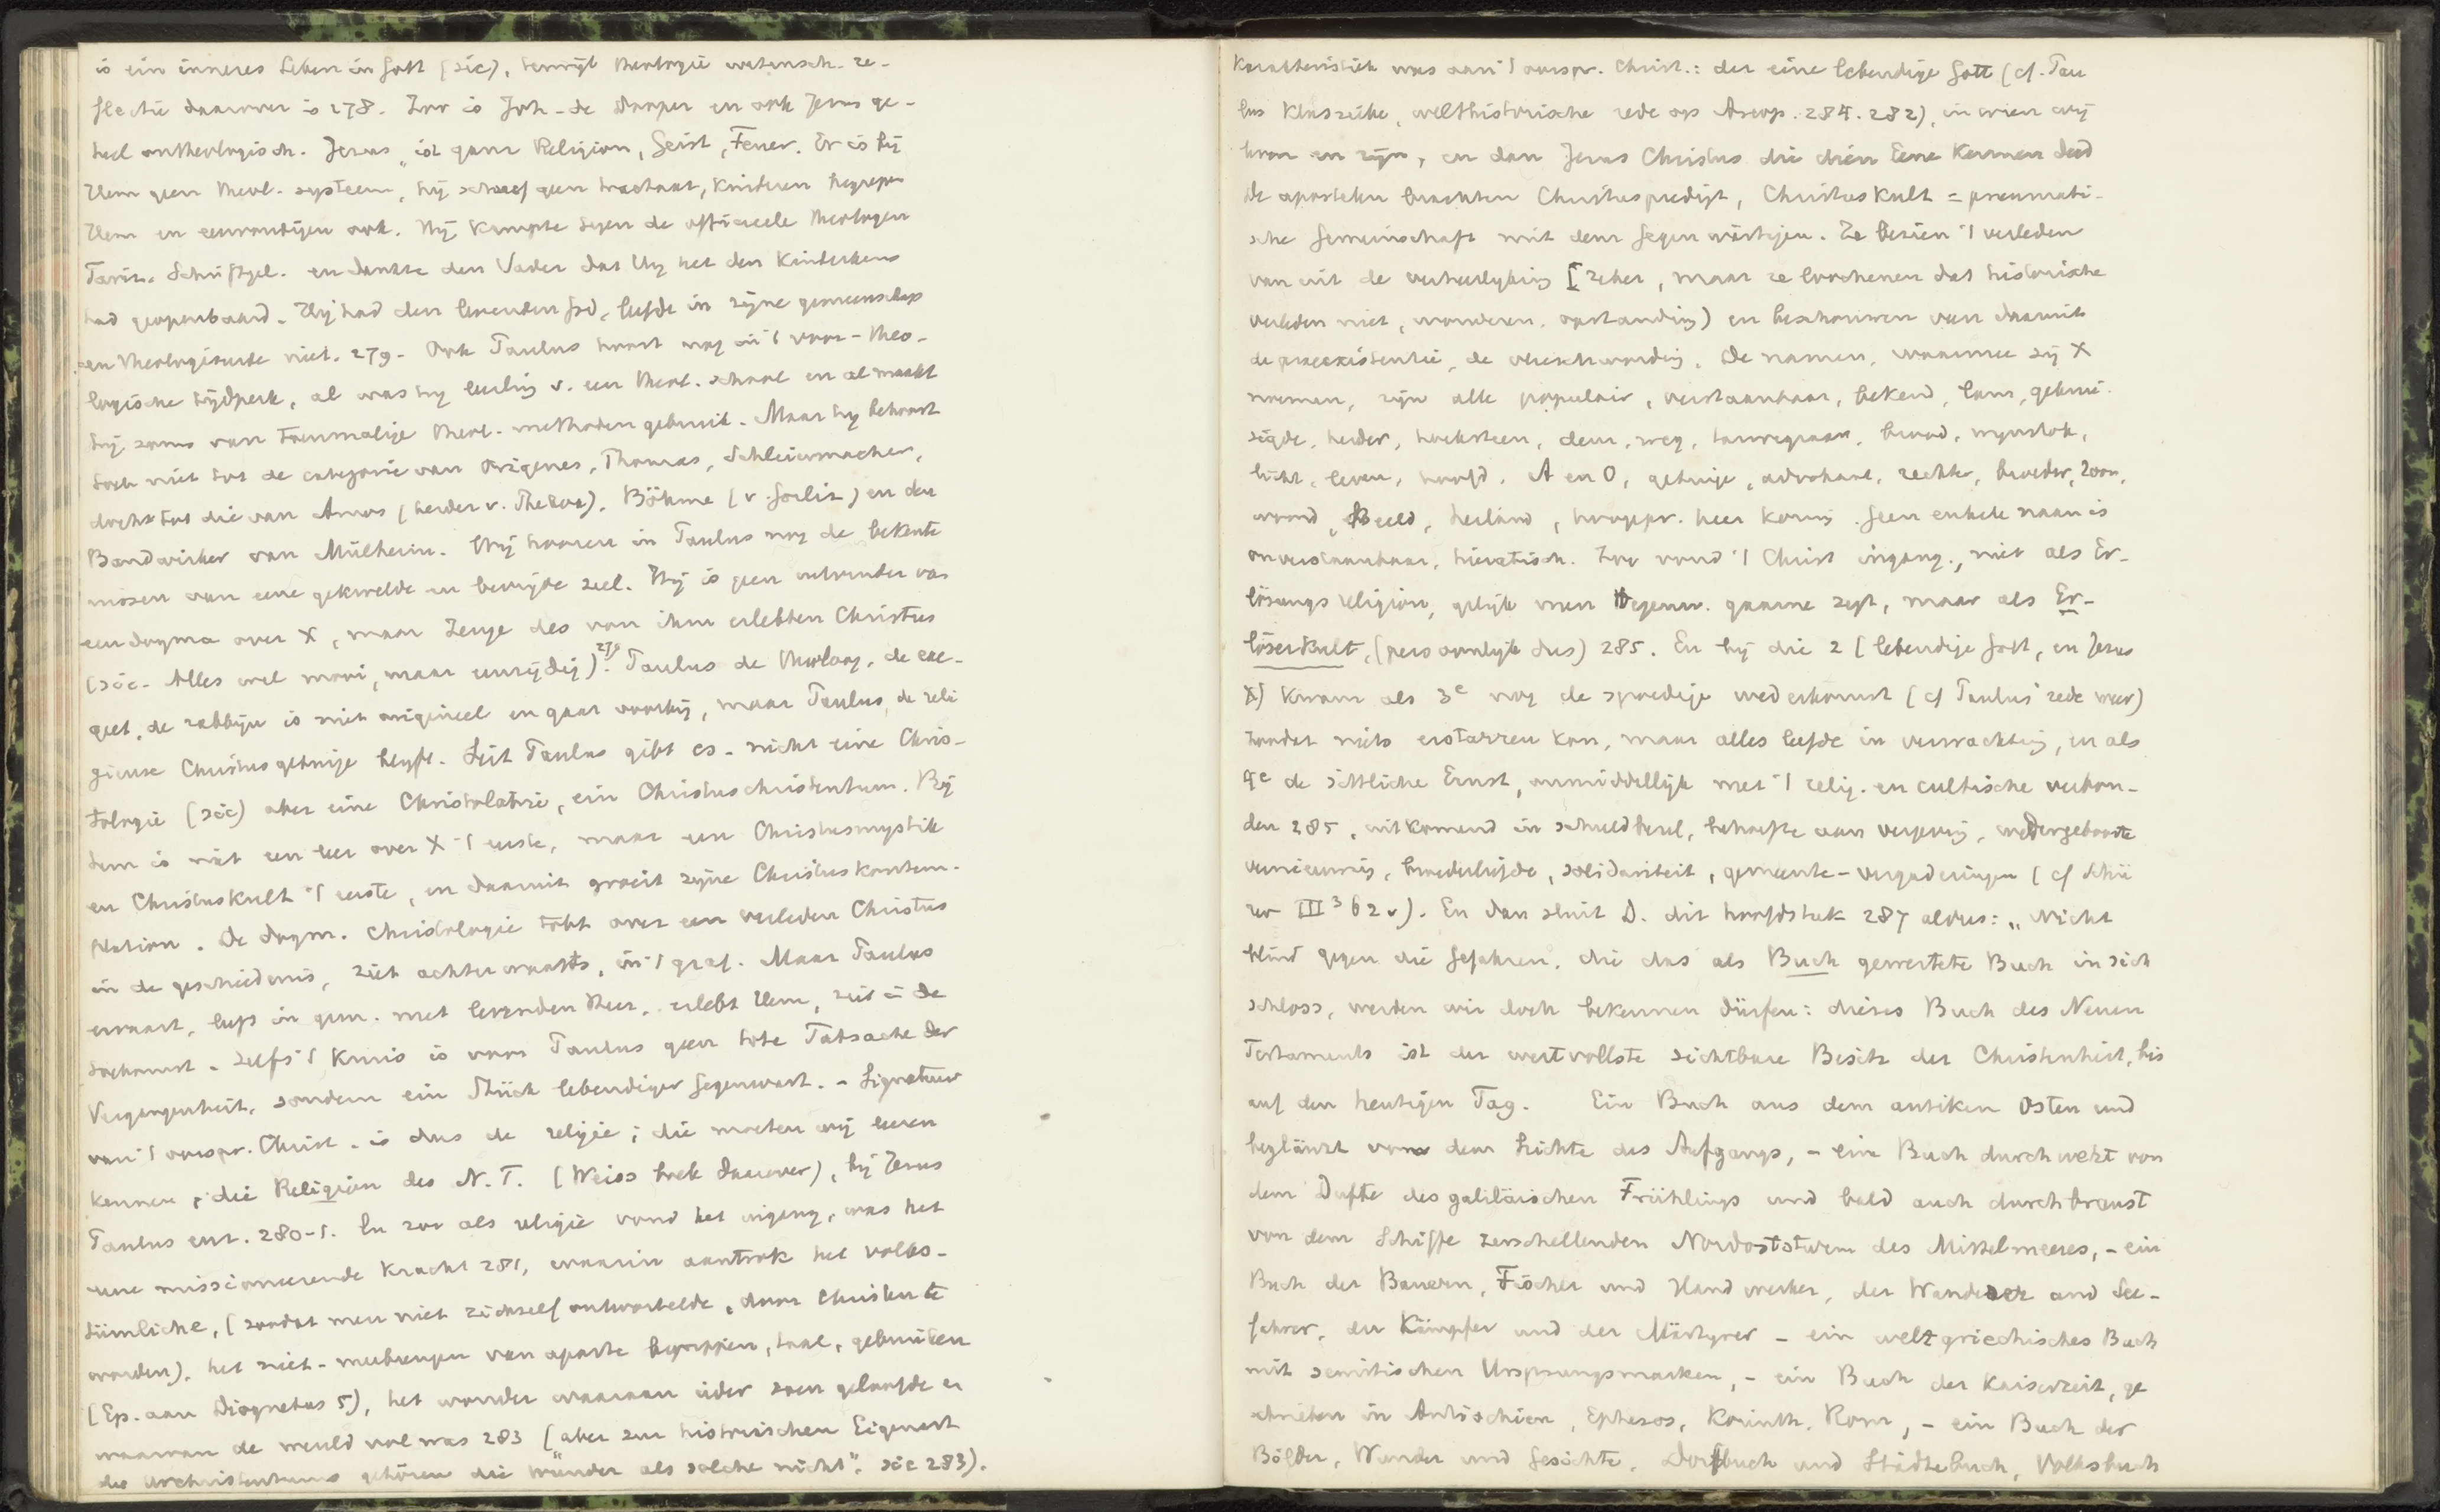 is ein inneres Leben in Gott (sic), terwijl theologie wetensch. re-
flectie daarover is 278. Zoo is Joh. de Dooper en ook Jezus ge-
heel ontheologisch. Jezus „ist ganz Religion, Geist, Feuer. Er is bij
Hem geen theol. systeem, hij schreef geen tractaat, kinderen begrepen
Hem en eenvoudigen ook. Hij kampte tegen de officieele theologen
Fariz. Schriftgel. en dankte den Vader dat Hij het den kinderkens
had geopenbaard. Hij had den levenden God, leefde in zijne gemeenschap
en theologiseerde niet. 279. Ook Paulus hoort nog in 't voor-theo-
logische tijdperk, al was hij leerling v. een theol. school en al maakt
hij soms van toenmalige theol. methoden gebruik. Maar hij behoort
toch niet tot de categorie van Origenes, Thomas, Schleiermacher,
doch tot die van Amos (herder v. Thekoa), Böhme (v. Görlitz) en den
Bandwirker van Mülheim. Wij hooren in Paulus nog de bekente-
nissen van eene gekwelde en bevrijde ziel. Hij is geen uitvinder van
een dogma over X, maar Zeuge des von ihm erlebten Christus
(sic. Alles wel mooi, maar eenzijdig). 279 Paulus de theoloog, de exe-
geet, de rabbijn is niet origineel en gaat voorbij, maar Paulus, de reli
gieuse Christusgetuige blijft. Seit Paulus gibt es nicht eine Chris-
tologie (sic) aber eine Christolatrie, ein Christuschristentum. Bij
hem is niet een leer over X 't eerste, maar een Christusmystik
en Christuskult 't eerste, en daaruit groeit zijne Christuskontem-
plation. De dogm. Christologie tobt over een verleden Christus
in de geschiedenis, ziet achterwaarts, in 't graf. Maar Paulus
ervaart, leeft in gem. met levenden Heer, erlebt Hem, ziet in de
toekomst. Zelfs 't kruis is voor Paulus geen tote Tatsache der
Vergangenheit, sondern ein Stück lebendiger Gegenwart. - Signatuur
van 't oorspr. Christ. is dus de religie; die moeten wij leeren
kennen, die Religion des N. T. (Weiss boek daarover), bij Jezus
Paulus enz. 280-1. En zoo als religie vond het ingang, was het
eene missioneerende kracht 281, waarin aantrok het volks-
tümliche, (zoodat men niet zichzelf ontwortelde, door Christen te
worden), het niet-meebrengen van aparte begrippen, taal, gebruiken
(Ep. aan Diognetus 5), het wonder waaraan ieder toen geloofde en
waarvan de wereld vol was 283 (aber zur historischen Eigenart
des Urchristentums gehören die Wunder als solche nicht". sic 283).
Karakteristiek was aan 't oorspr. Christ.: der eine lebendige Gott (cf. Pau
lus klassieke, welthistorische rede op Areop. 284. 282), in wien wij
leven en zijn, en dan Jezus Christus die dien Eene kennen deed
De apostelen brachten Christuspredigt, Christuskult = pneumati-
sche Gemeinschaft mit dem Gegenwärtigen. Ze bezien 't verleden
van uit de verheerlijking [zeker, maar ze loochenen dat historische
verleden niet, wonderen, opstanding) en beschouwen van daaruit
de praeexistentie, de vleeschwording. De namen, waarmee zij X
noemen, zijn alle populair, verstaanbaar, bekend, lam, gekrui-
sigde, herder, hoeksteen, deur, weg, tarwegraan, brood, wijnstok,
licht, leven, hoofd, A en O, getuige, advokaat, rechter, broeder, Zoon,
woord, Beeld, heiland, hoogepr. heer koning. Geen enkele naam is
onverstaanbaar, hieratisch. Zoo vond 't Christ ingang, niet als Er-
lösungsreligion, gelijk men tegenw. gaarne zegt, maar als Er-
löserkult, (persoonlijk dus) 285. En bij die 2 [lebendige Gott, en Jezus
X) kwam als 3e nog de spoedige wederkomst (cf Paulus' rede weer)
zoodat niets erstarren kon, maar alles leefde in verwachting, en als
4e de sittliche Ernst, onmiddellijk met 't relig. en cultische verbon-
den 285, uitkomend in schuldbesef, behoefte aan vergeving, wedergeboorte
vernieuwing, broederliefde, solidariteit, gemeente-vergaderingen (cf Schü
rer III³ 62 v). En dan sluit D. dit hoofdstuk 287 aldus: „Nicht
blind gegen die Gefahren, die das als Buch gewertete Buch in sich
schloss, werden wir doch bekennen dürfen: dieses Buch des Neuen
Testaments ist der wertvollste sichtbare Besitz der Christenheit, bis
auf den heutigen Tag. Ein Buch aus dem antiken Osten und
beglänzt von dem Lichte des Aufgangs, - ein Buch durchweht von
dem Dufte des galiläischen Frühlings und bald auch durchbraust
von dem Schiffe zerschellenden Nordoststurm des Mittelmeeres, - ein
Buch der Bauern, Fischer und Handwerker, der Wanderer und See-
fahrer, der Kämpfer und der Märtyrer - ein weltgriechisches Buch
mit semitischen Ursprungsmarken, - ein Buch der Kaiserzeit, ge
schrieben in Antiochien, Ephesos, Korinth, Rom, - ein Buch der
Bilder, Wunder und Gesichte, Dorfbuch und Städtebuch, Volksbuch